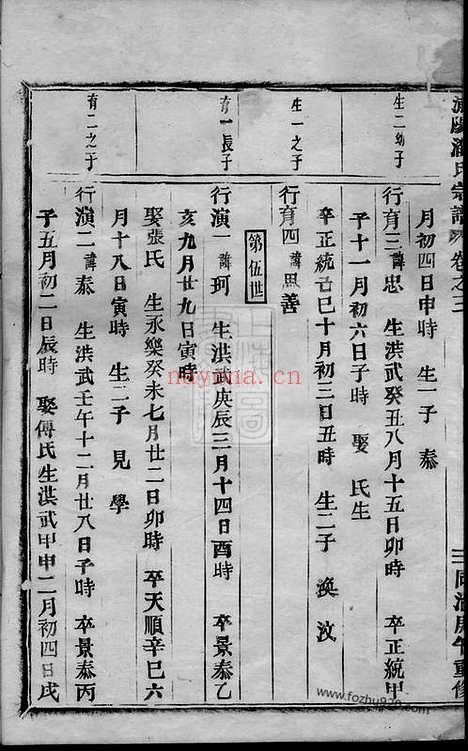 氏宗譜 卷之三
月初四日申時 生一子 泰
生二幼子
行育三諱忠 生洪武癸丑八月十五日卯時 卒正統甲
子十一月初六日子時 娶 氏生
卒正統己巳十月初三日丑時 生二子 渙 汶
生一之子
行育四諱思善
第伍世
育一長子
行演一諱珂 生洪武庚辰三月十四日酉時 卒景泰乙
亥九月廿九日寅時
娶張氏 生永樂癸未七月廿二日卯時 卒天順辛巳六
月十八日寅時 生二子 見 學
育二之子
行演二諱泰 生洪武壬午十二月廿八日子時 卒景泰丙
子五月初二日辰時 娶傅氏生洪武甲申二月初四日戌
nayona.cn
www.fozhu920.com